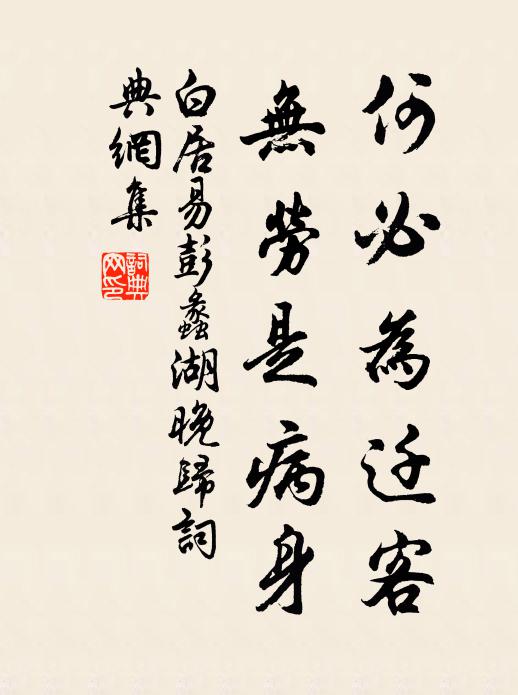 何必為迁客
無勞是病身
白居易彭蠡湖晚歸詞
典網集
詞典
网印